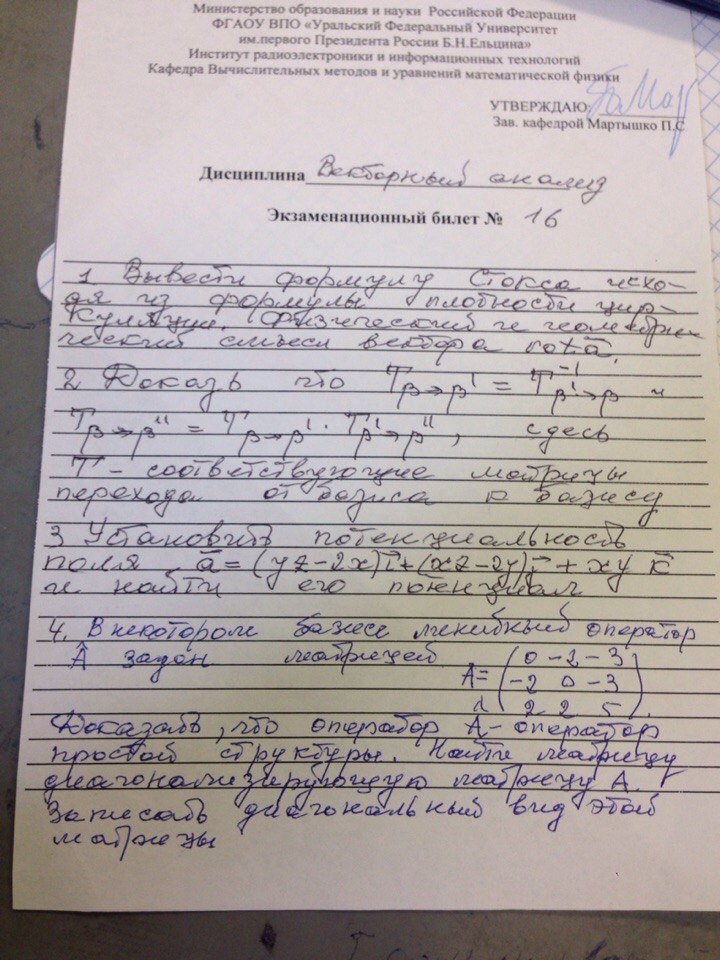 Министерство образования и науки Российской Федерации
ФГАОУ ВПО «Уральский Федеральный Университет
им.первого Президента России Б.Н.Ельцина»
Институт радиоэлектроники и информационных технологий
Кафедра Вычислительных методов и уравнений математической физики
УТВЕРЖДАЮ:
Зав. кафедрой Мартышко П.С
Дисциплина Векторный анализ
Экзаменационный билет № 16
1 Вывести формулу Стокса исхо-
дя из формулы плотности цир-
куляции. Физический и геометри-
ческий смысл вектора rot a⃗.
2 Доказ что T β→β' = T⁻¹ β'→β и
T β→β'' = T β→β' · T β'→β'', здесь
T - соответствующие матрицы
перехода от базиса к базису
3 Установить потенциальность
поля a⃗ = (yz-2x)i⃗+(xz-2y)j⃗ + xy k⃗
и найти его потенциал
4. В некотором базисе линейный оператор
Â задан матрицей A= (0 -2 -3
-2 0 -3
2 2 5).
Доказать, что оператор Â - оператор
простой структуры. Найти матрицу
диагонализирующую матрицу A.
Записать диагональный вид этой
матрицы